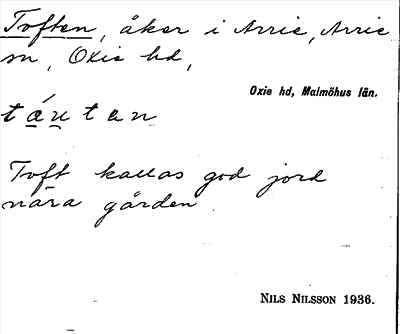 Toften, åker i Arrie, Arrie
sn, Oxie hd,
Oxie hd, Malmöhus län.
táutan
Toft kallas god jord
nära gården.
NILS NILSSON 1936.